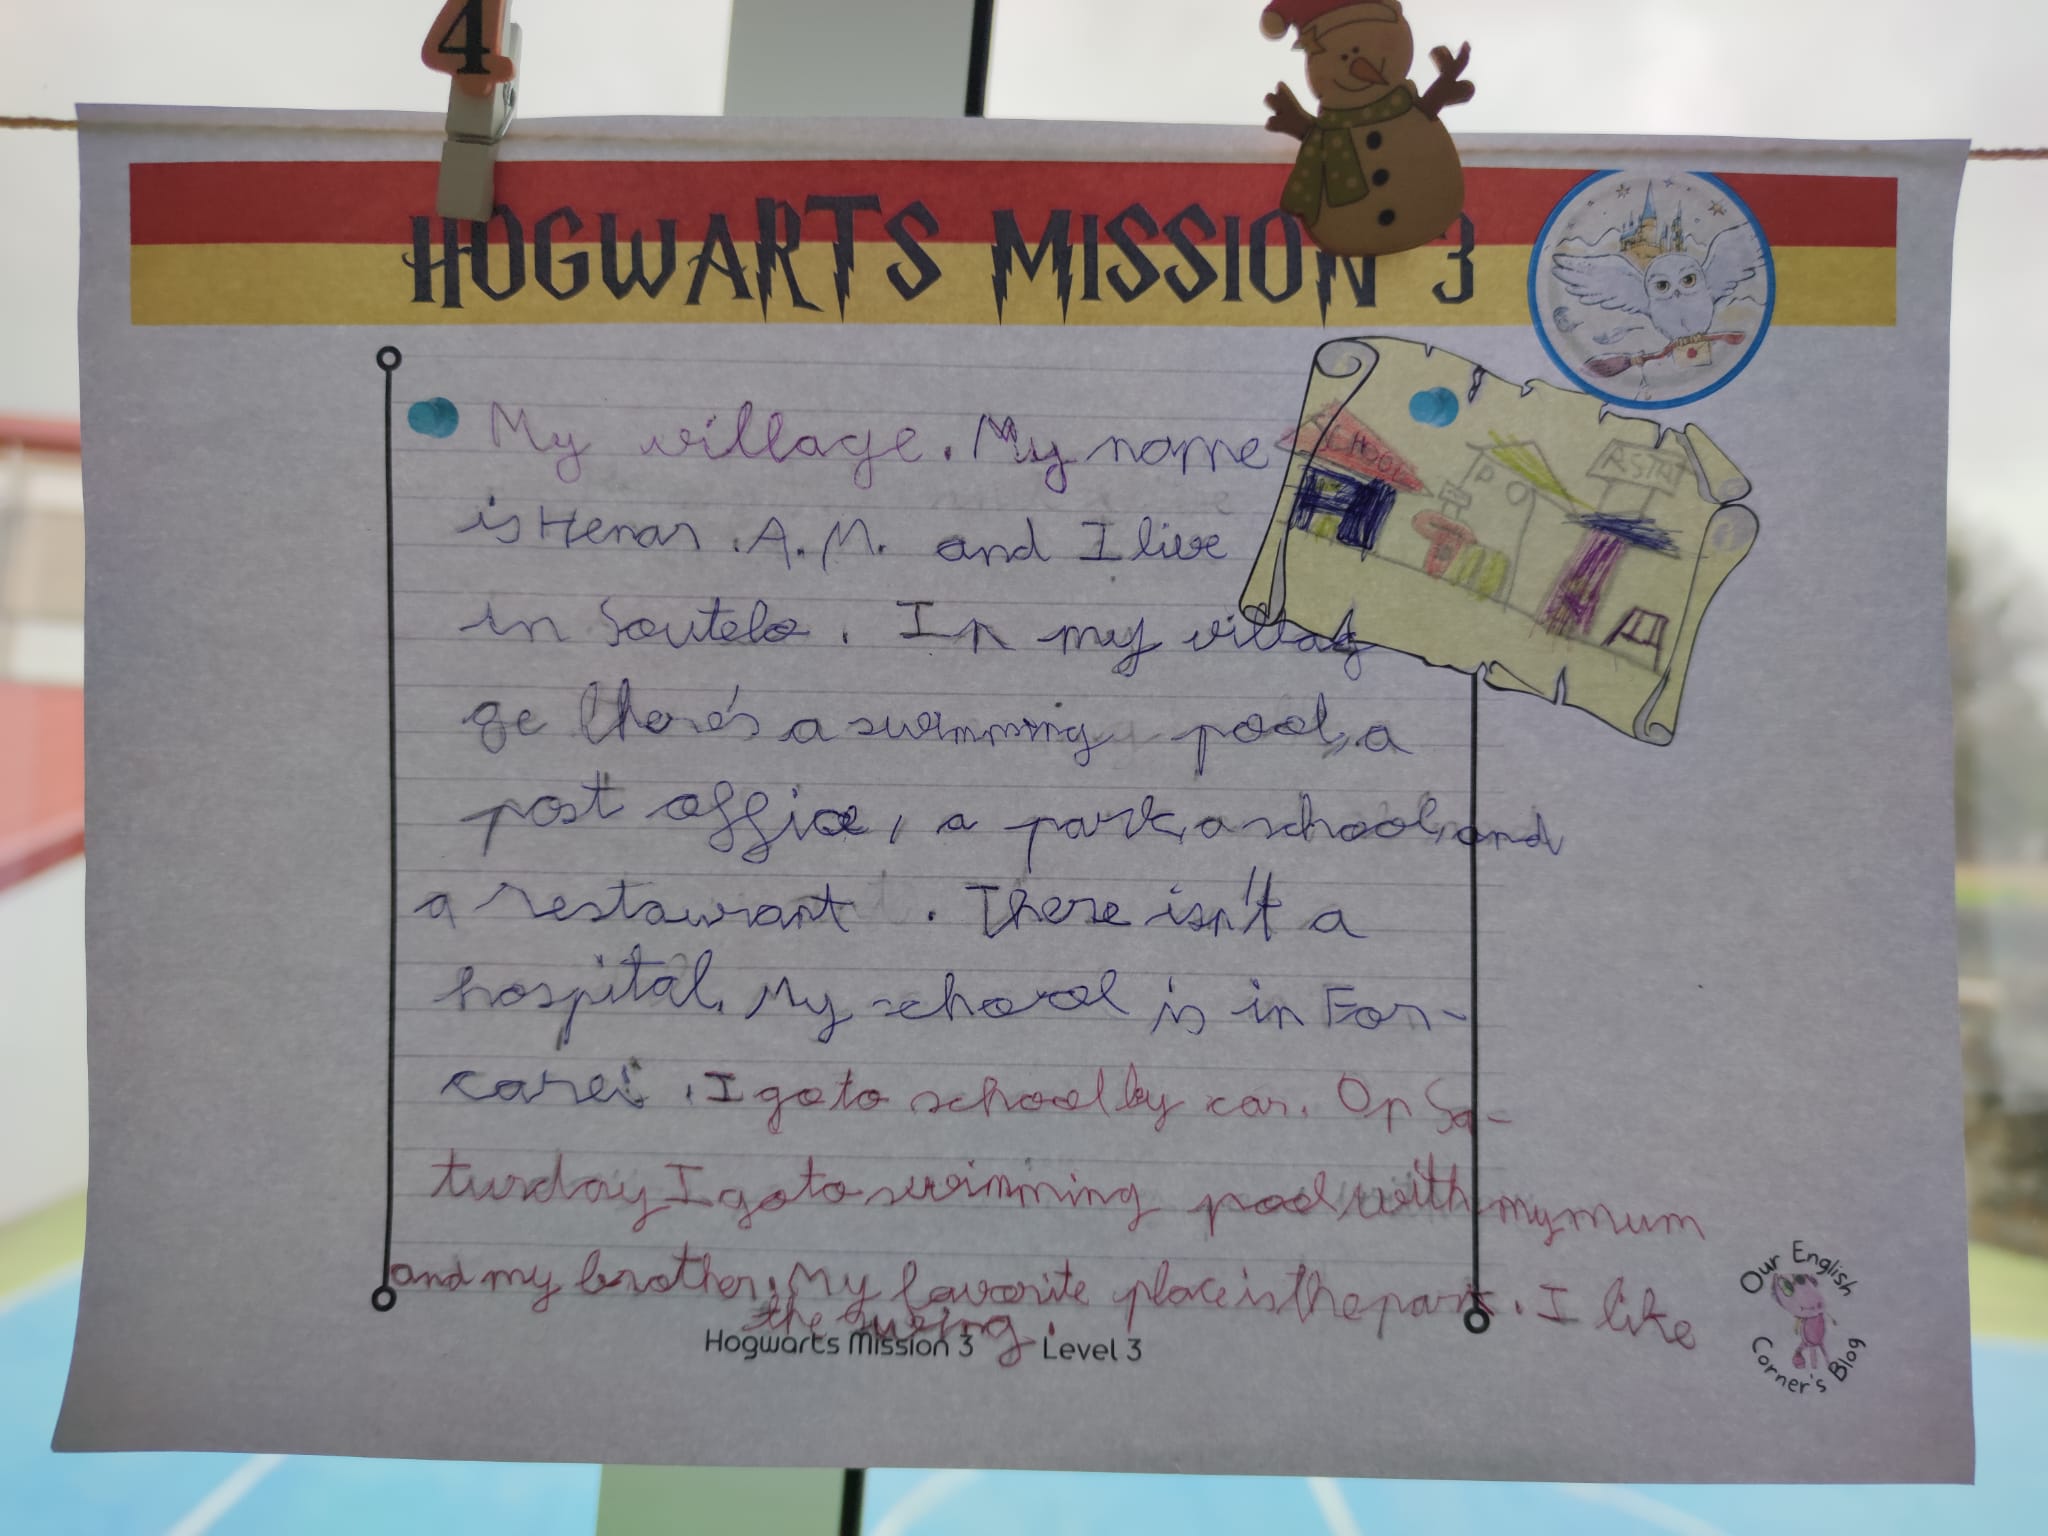 4
HOGWARTS MISSION 3
My village. My name
is Henar .A.M. and I live
in Soutelo. In my villag
ge there's a swimming pool, a
post office, a park, a school, and
a restaurant. There isn't a
hospital. My school is in For-
carei. I go to school by car. On Sa-
turday I go to swimming pool with my mum
and my brother. My favorite place is the park. I like
the swing.
SCHOOL
PO
RSTAT
Hogwarts Mission 3 Level 3
Our English
Corner's Blog